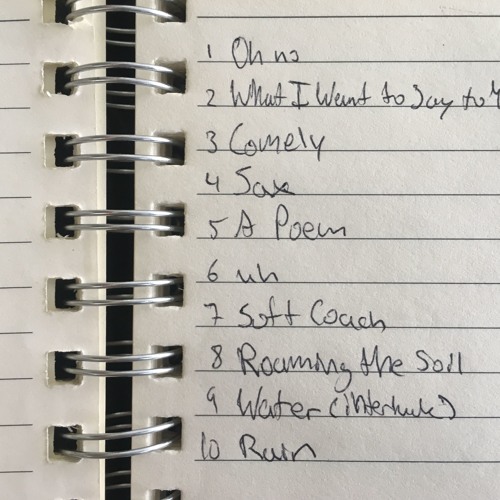 1 Oh no
2 What I Want to Say to
3 Comely
4 Sax
5 A Poem
6 uh
7 Soft Couch
8 Roaming the Soil
9 Water (interlude)
10 Rain